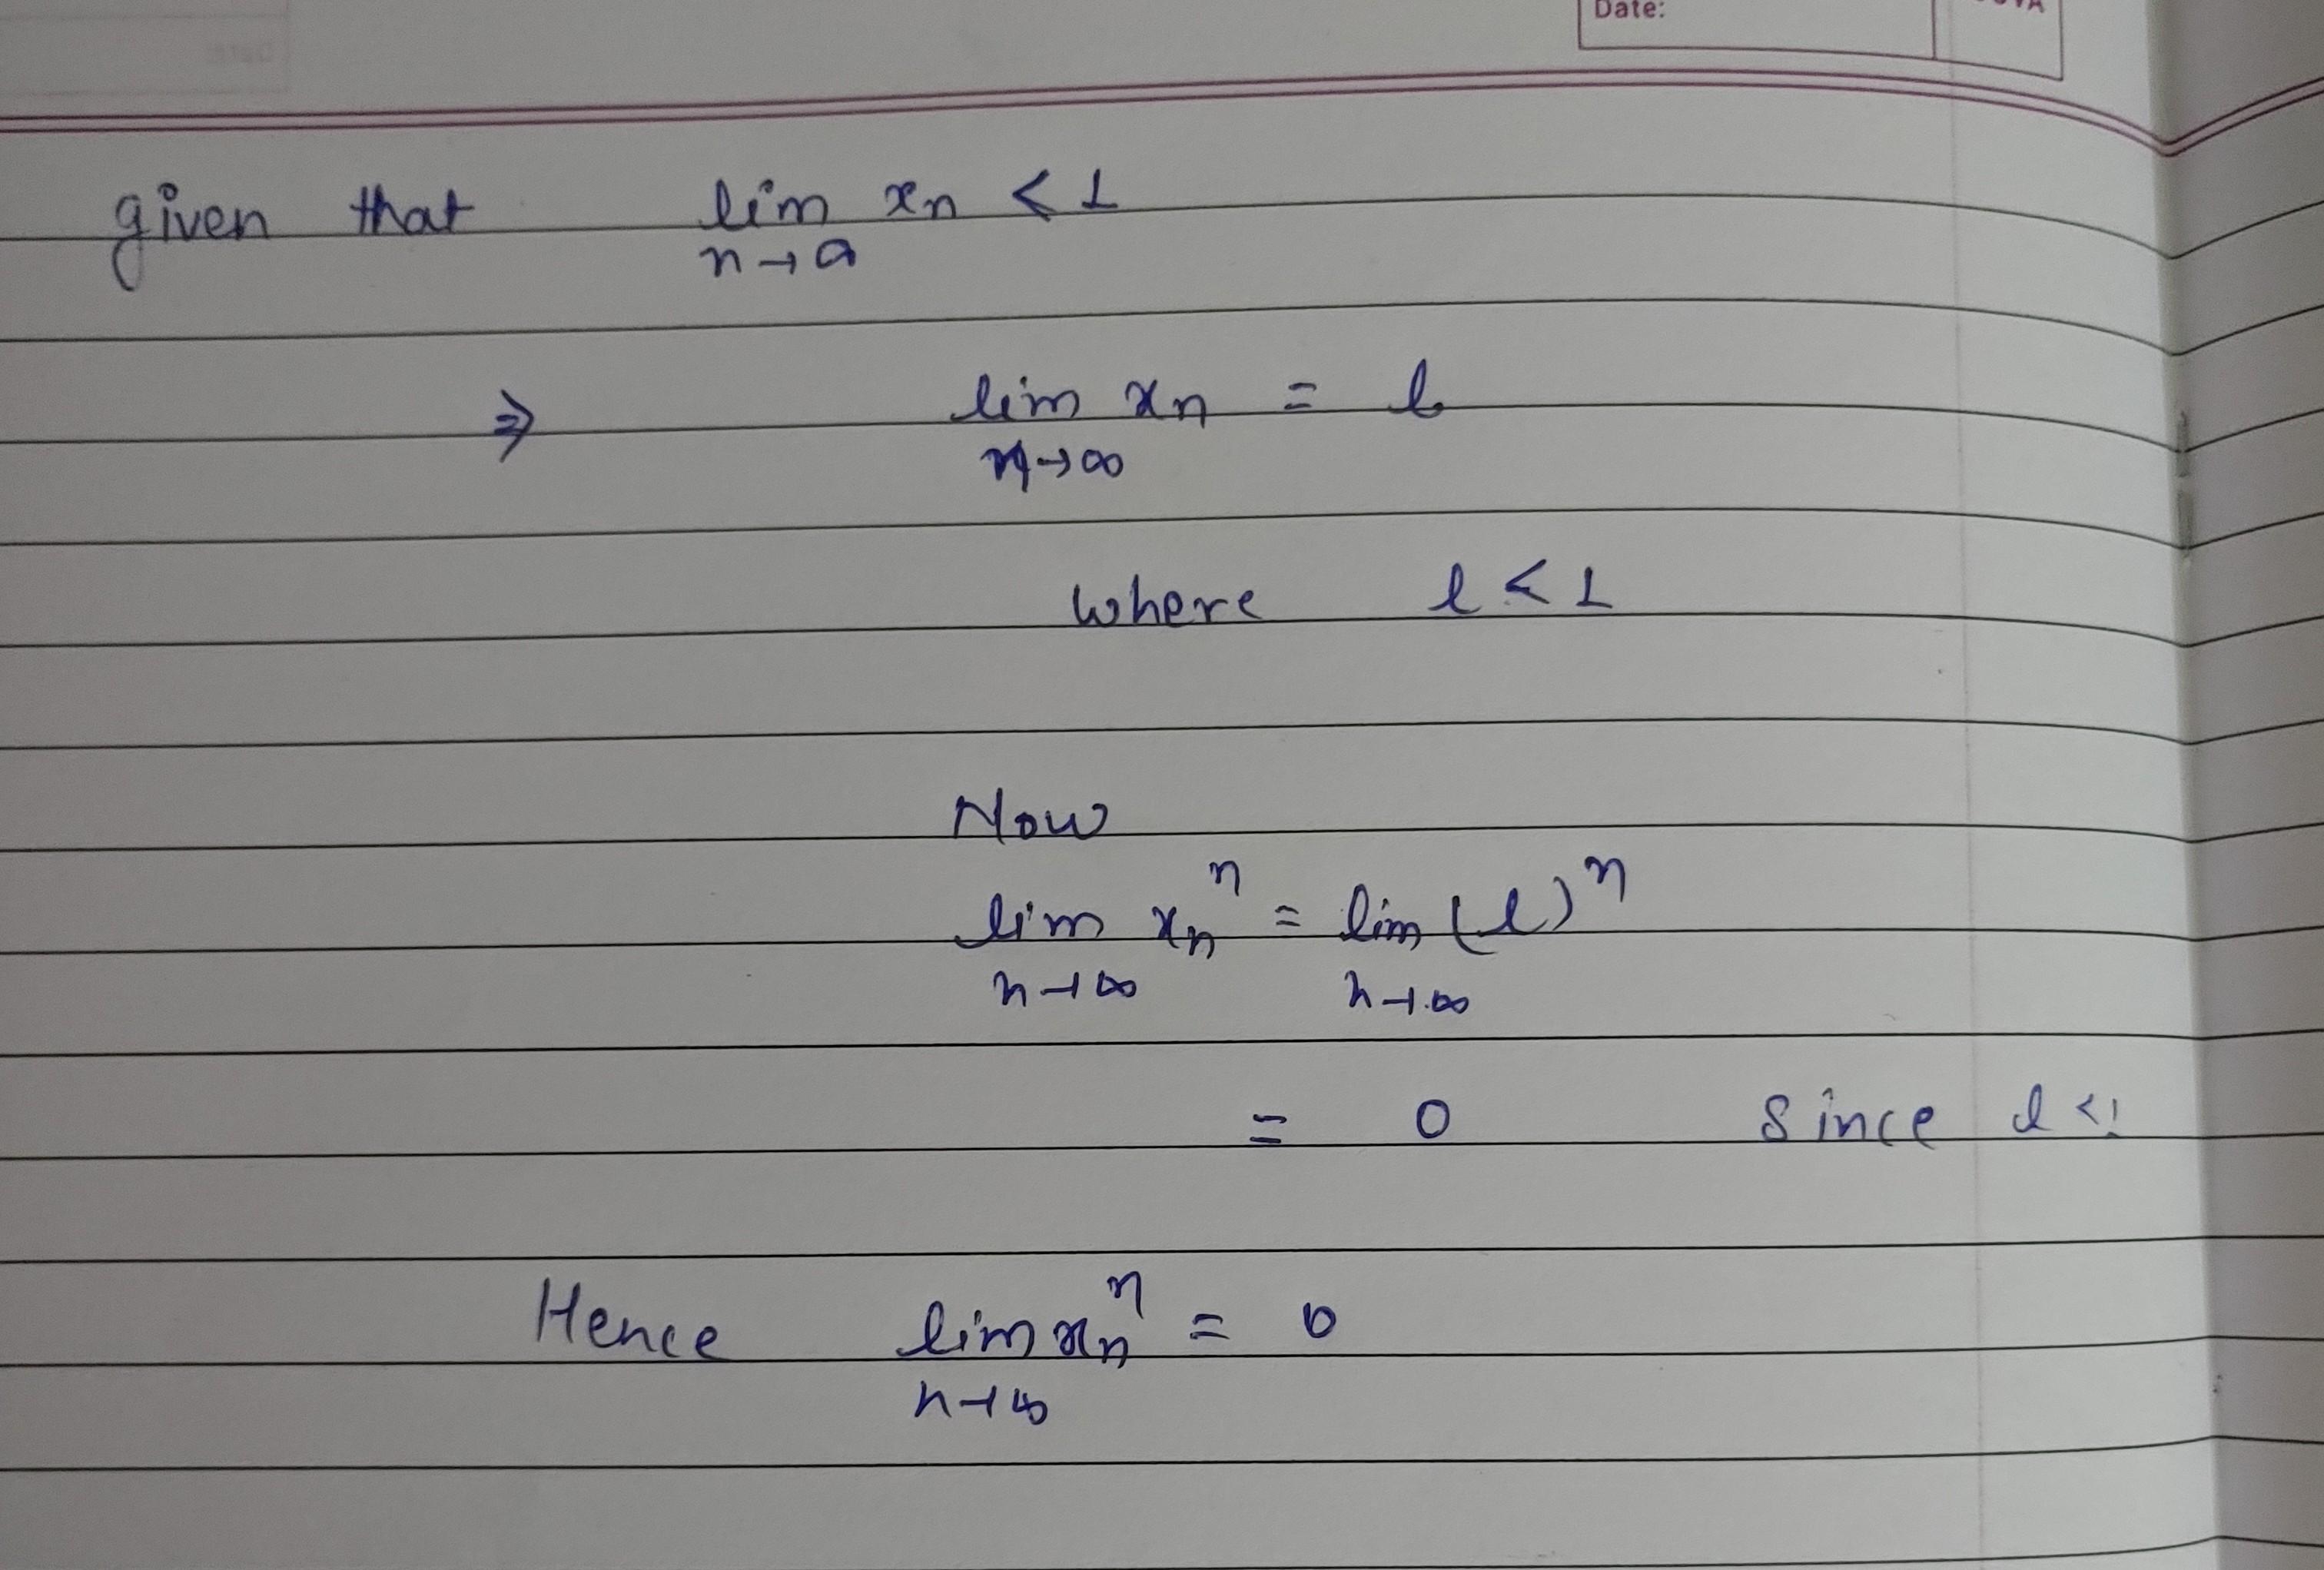 Date:
given that lim xn < 1
n→a
⇒ lim xn = l
n→∞
where l < 1
Now
lim xn^n = lim (l)^n
n→∞ n→∞
= 0 Since l < 1
Hence lim xn^n = 0
n→∞